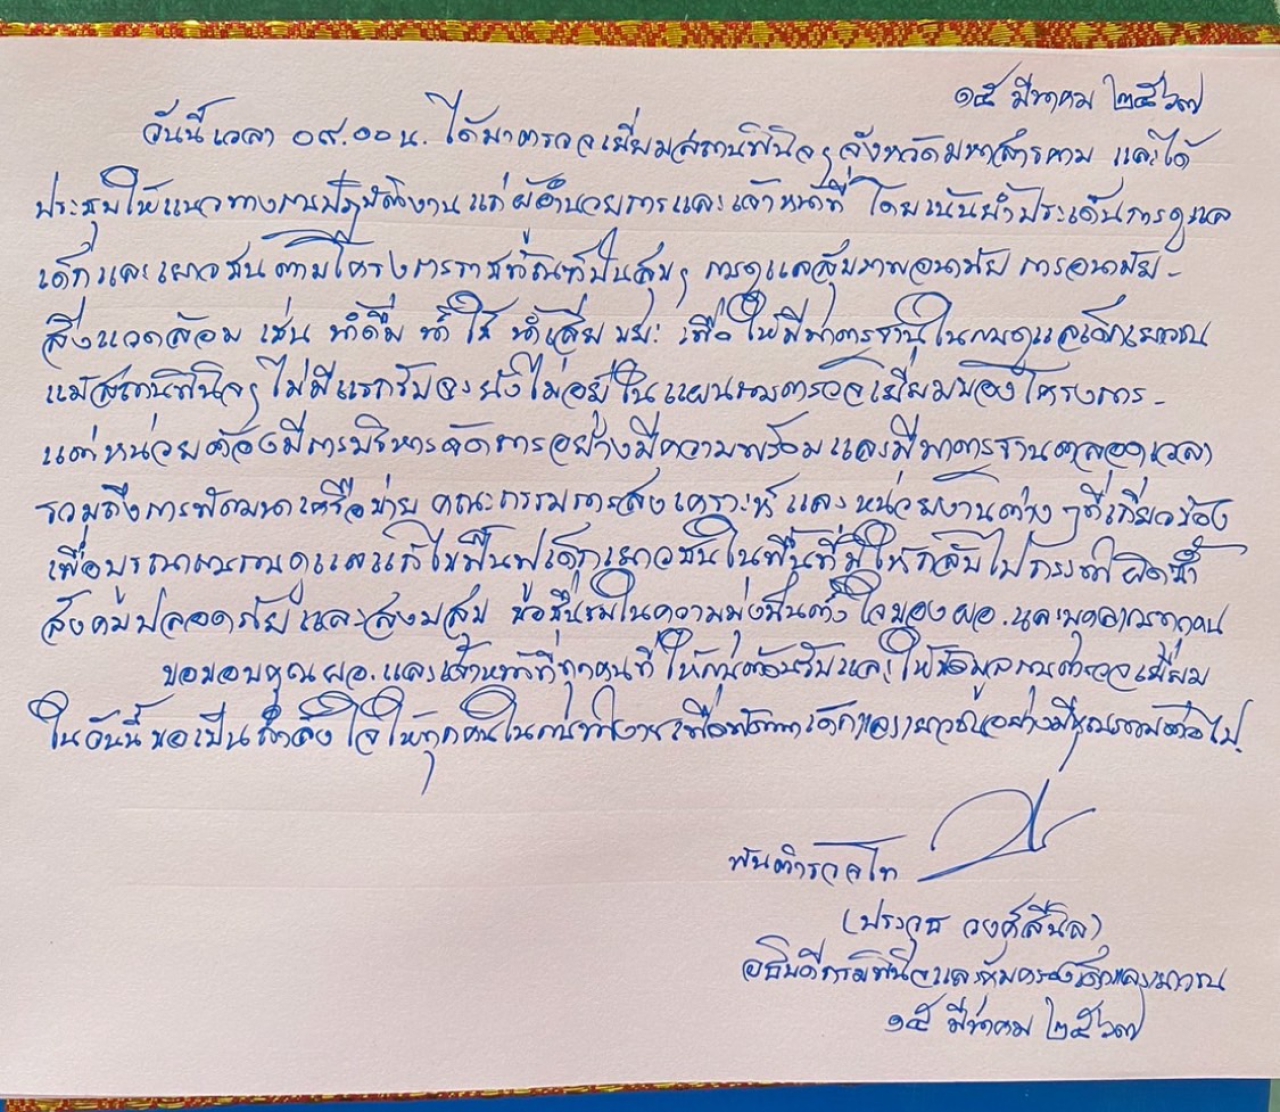 ๑๕ มีนาคม ๒๕๖๗
วันนี้เวลา ๐๙.๐๐ น. ได้มาตรวจเยี่ยมสถานพินิจฯ จังหวัดมหาสารคาม และได้
ประชุมให้แนวทางการปฏิบัติงานแก่ผู้อำนวยการและเจ้าหน้าที่ โดยเน้นย้ำประเด็นการดูแล
เด็กและเยาวชนตามโครงการราชทัณฑ์ปันสุขฯ การดูแลสุขภาพอนามัย การอนามัย-
สิ่งแวดล้อม เช่น น้ำดื่ม น้ำใช้ น้ำเสีย ขยะ เพื่อให้มีมาตรฐานในการดูแลเด็กเยาวชน
แม้สถานพินิจฯ ไม่มีแรกรับจะยังไม่อยู่ในแผนการตรวจเยี่ยมของโครงการ-
แต่หน่วยต้องมีการบริหารจัดการอย่างมีความพร้อมและมีมาตรฐานตลอดเวลา
รวมถึงการพัฒนาเครือข่าย คณะกรรมการสงเคราะห์และหน่วยงานต่างๆที่เกี่ยวข้อง
เพื่อบูรณาการการดูแลแก้ไขฟื้นฟูเด็กเยาวชนในพื้นที่มิให้กลับไปกระทำผิดซ้ำ
สังคมปลอดภัยและสงบสุข ขอชื่นชมในความมุ่งมั่นตั้งใจของผอ.และบุคลากรทุกคน
ขอขอบคุณผอ.และเจ้าหน้าที่ทุกคนที่ให้การต้อนรับและให้ข้อมูลการตรวจเยี่ยม
ในวันนี้ ขอเป็นกำลังใจให้ทุกคนในการทำงานเพื่อพัฒนาเด็กและเยาวชนอย่างมีคุณภาพต่อไป.
พันตำรวจโท
(ประวุธ วงศ์สีนิล)
อธิบดีกรมพินิจและคุ้มครองเด็กและเยาวชน
๑๕ มีนาคม ๒๕๖๗